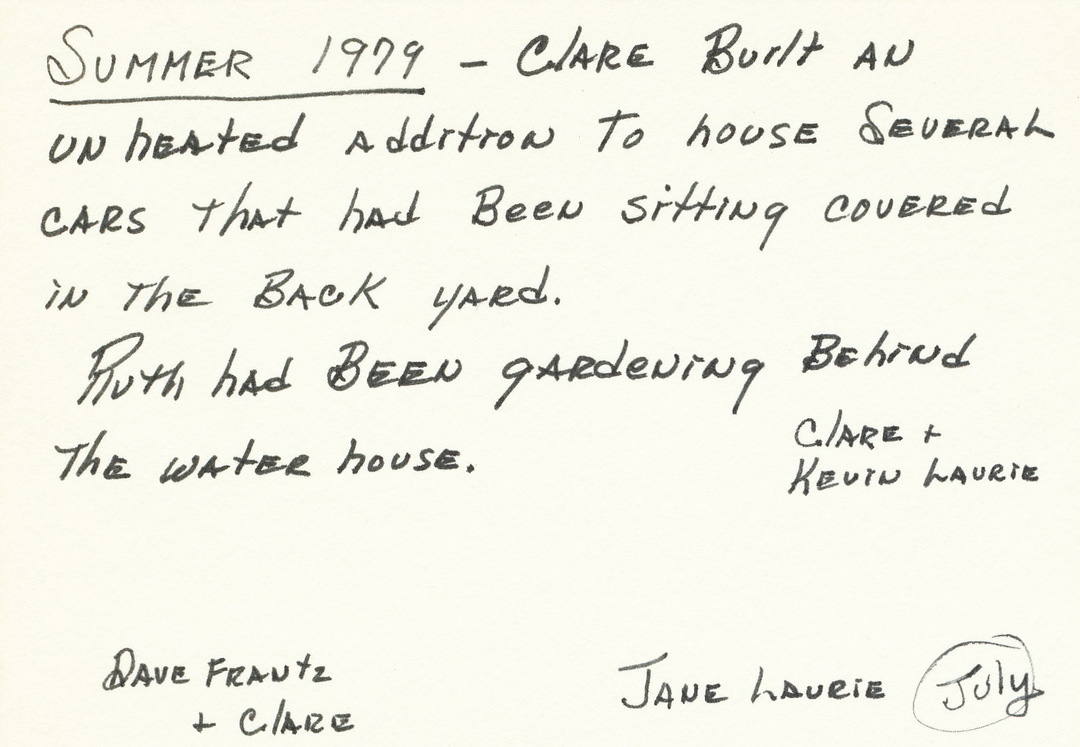 SUMMER 1979 - Clare Built an
unheated addition to house Several
cars that had Been sitting covered
in the Back yard.
Ruth had BEEN gardening Behind
The water house.
Clare +
Kevin Laurie
Dave Frantz
+ Clare
Jane Laurie July